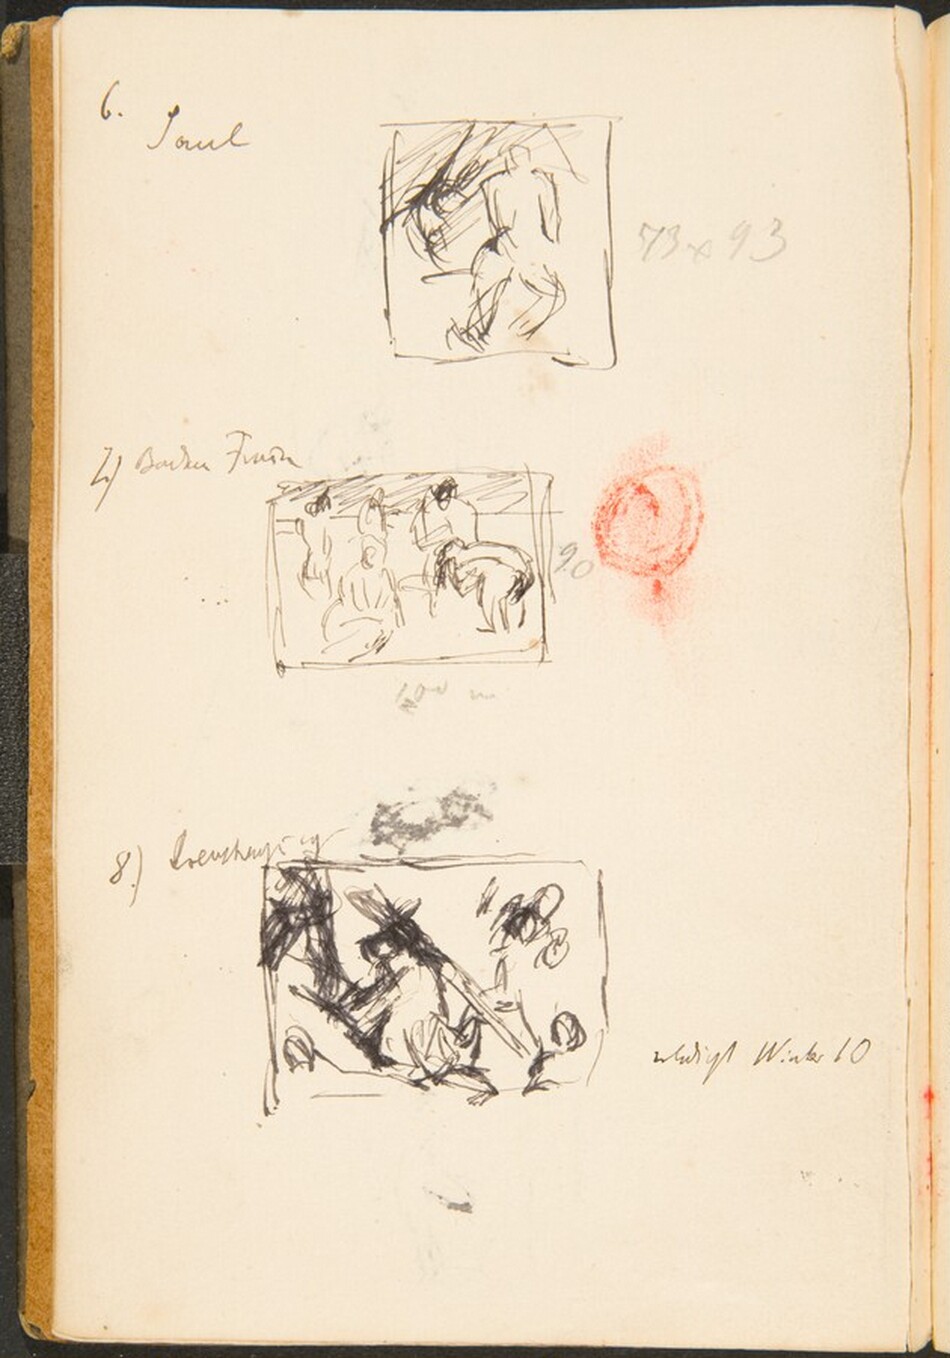 6.
Saul
73 x 93
7) Baden Frauen
90
100
8) Kreuztragung
erledigt Winter 10